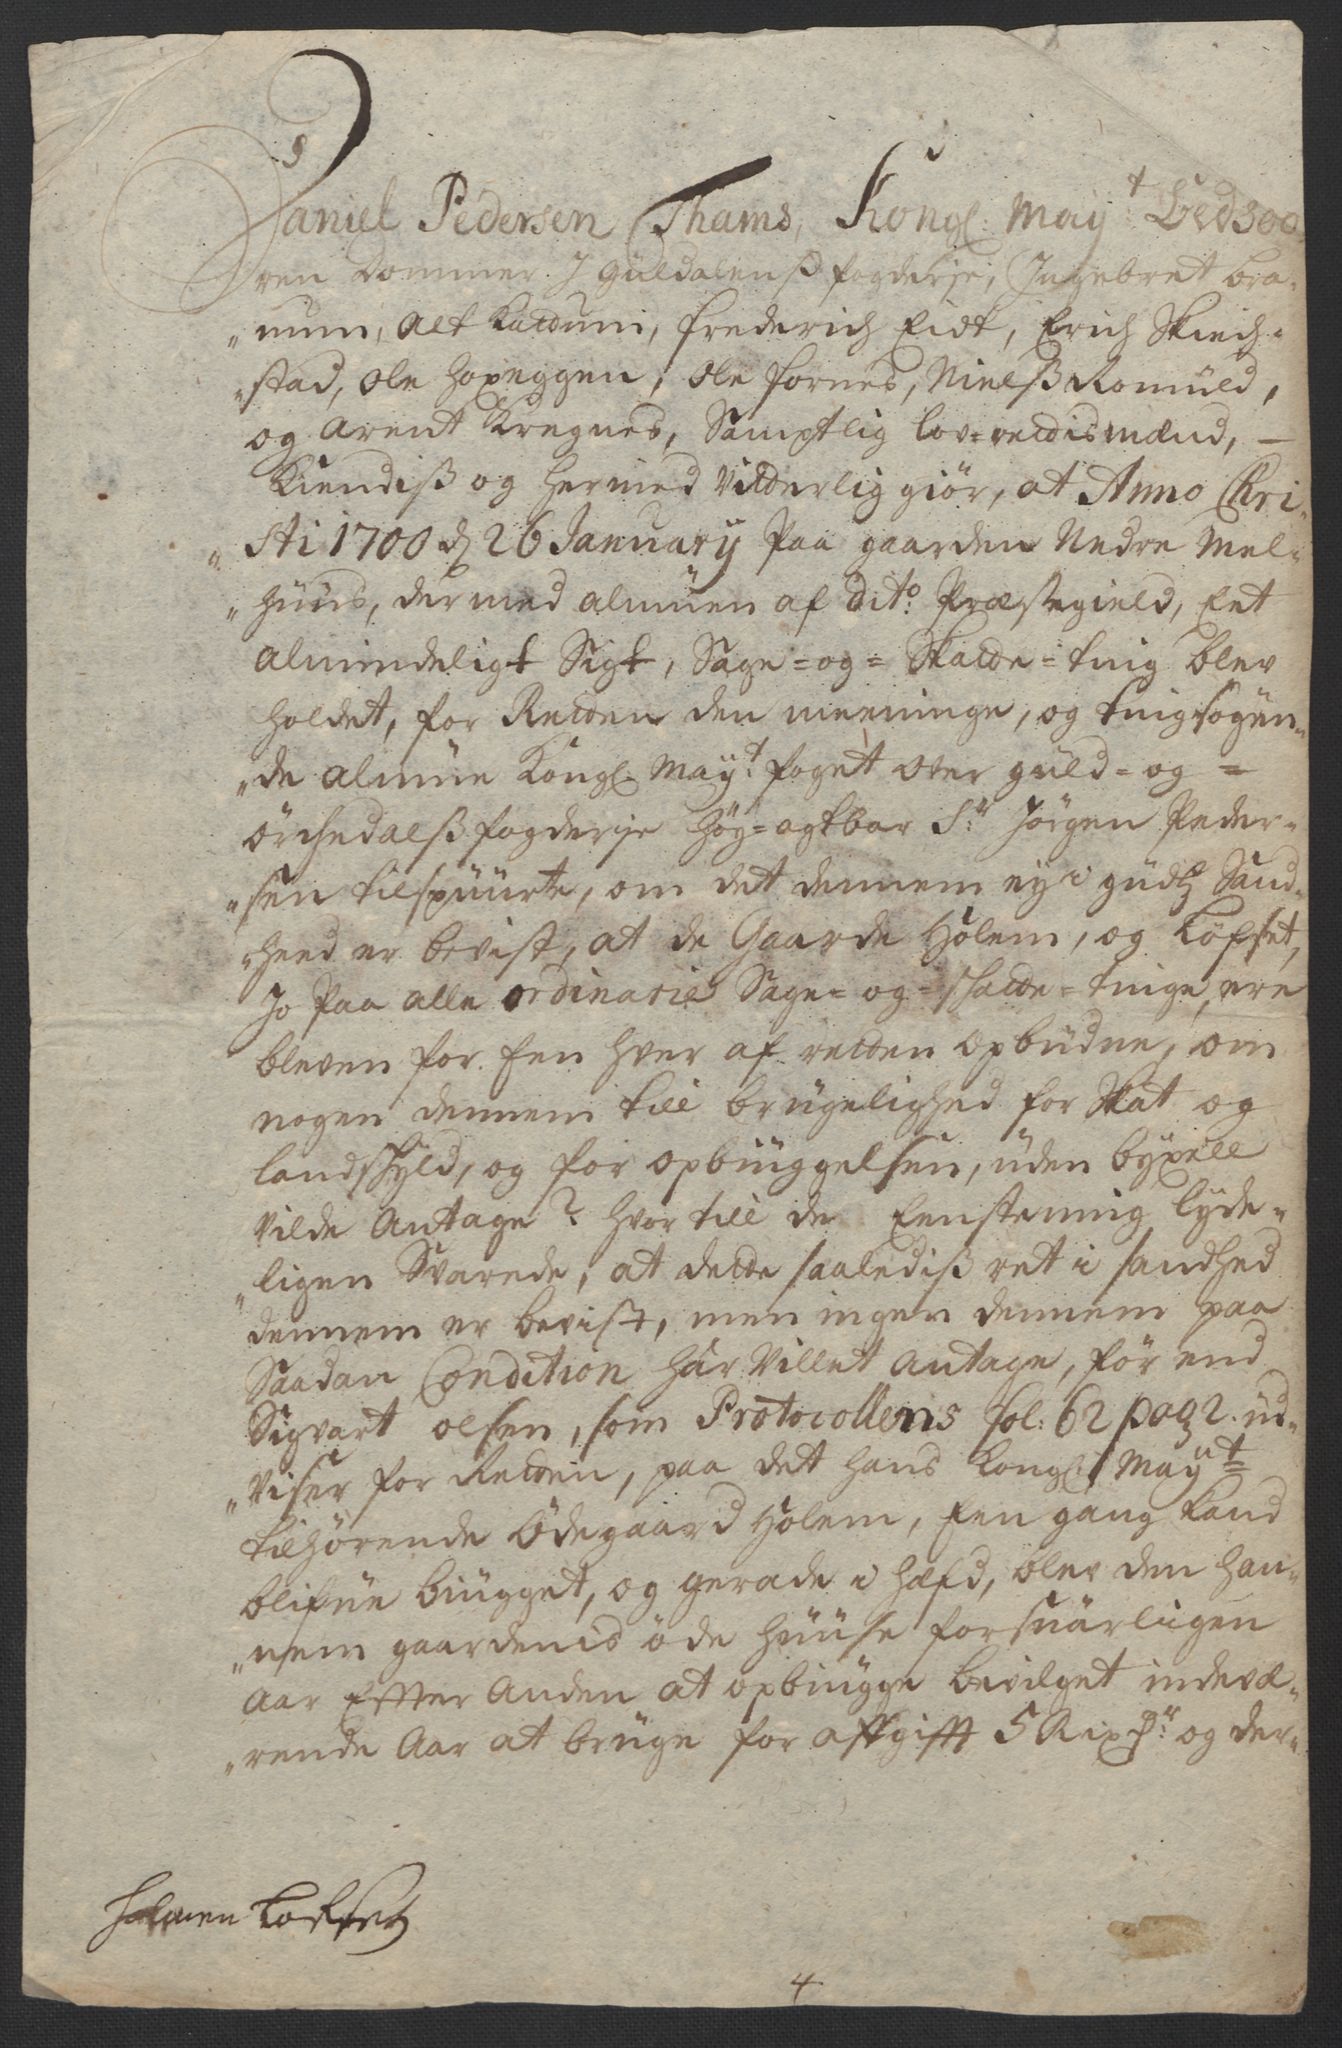 Daniel Pedersen Thams, Kongl: May:t Bedsoo
ren Dommer J Guldalens fogderje, Ingebret bra-
"num, Alt Kaldum, frederich Eidt, Erich Skieh-
"stad, Ole hoxeggen, Ole fornes, Nielß Romuld,
og Arent Kregnes, Samptlig lov-rettismænd, —
Kiendiß og hermed Vitterlig giör, at Anno Chri-
"sti 1700 d 26 January Paa gaarden Nedre Mel-
"huus, der med almuen af dito: Præstegield, Eet
almindeligt Sigt, Sage-og-Skatte-ting blev
holdet, for Retten den meeninge, og tingsøgen-
"de almue Kongl: May:t foget over guld-og-
örchedalß fogderje höy-agtbar Sr: Jörgen Peder-
"sen tilspuurte, om det dennem ey i gudtz Sand-
"heed er bevist, at de Gaarde Holem, og Löfset,
Jo Paa alle ordinarie Sage-og-Skatte-tinge, ere
bleven for Een hver af retten opbudne, om
nogen dennem till brugelighed for Skat og
landskyld, og for opbiuggelsen, uden byxell
vilde Antage? hvor till de Eenstemig lyde-
"ligen Svarede, at dette saalediß ret i sandhed
dennem er bevist, men ingen dennem paa
Saadan Condition har Villet Antage, för end
Sigvart olsen, som Protocollens fol: 62 pag 2. ud-
"viser for Retten, paa det hans Kongl: May:t
tilhörende Ödegaard Holem, Een gang kand
blifue biugget, og gerade i hæfd, blev den han-
"nem gaardenis öde huuse forsuarligen
Aar Effter Anden at opbiugge bevilget indevæ-
"rende Aar at bruge for affgifft 5 Rixdr: og der-
Holmen Løfset
4